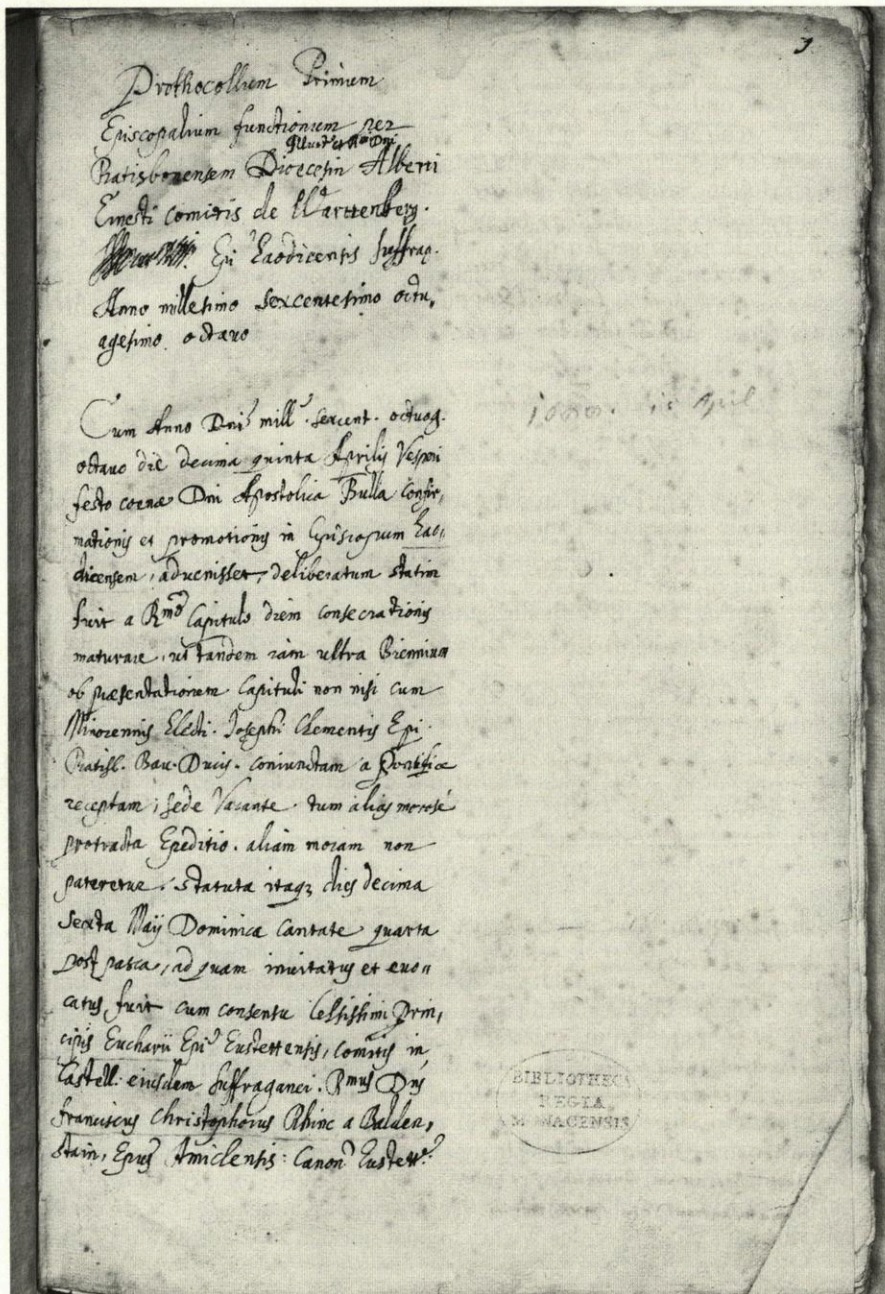 Prothocollum Primum
Episcopalium functionum per
Illustr. et Rm Dni
Ratisbonensem Dioecesin Alberti
Ernesti comitis de Warttenberg.
Epi Laodicensis suffrag.
Anno millesimo sexcentesimo octu,
agesimo octavo
Cum Anno Dni mill. sexcent. octuag.
octavo die decima quinta Aprilis Vesperi
festo coenae Dni Apostolica Bulla confir,
mationis et promotionis in Episcopum Lao,
dicensem, advenisset, deliberatum statim
fuit a Rmo Capitulo diem consecrationis
maturare, ut tandem iam ultra Biennium
ob praesentationem Capituli non nisi cum
Minorennis Electi. Josephi Clementis Epi
Ratisb. Bav. Ducis. coniunctam a Pontifice
receptam, sede Vacante tum alias morosè
protracta Expeditio. aliam moram non
pateretur. statuta itaq; dies decima
sexta Maij Dominica Cantate quarta
post pasca, ad quam invitatus et evo"
catus fuit cum consensu Celsissimi Prin,
cipis Eucharii Epi Eustettensis, comitis in
Castell. eiusdem suffraganei. Rmus Dns
Franciscus Christophorus Rhinc a Balden,
stain, Epus Amiclensis: Canon. Eustett.
April
BIBLIOTHECA
REGIA
MONACENSIS